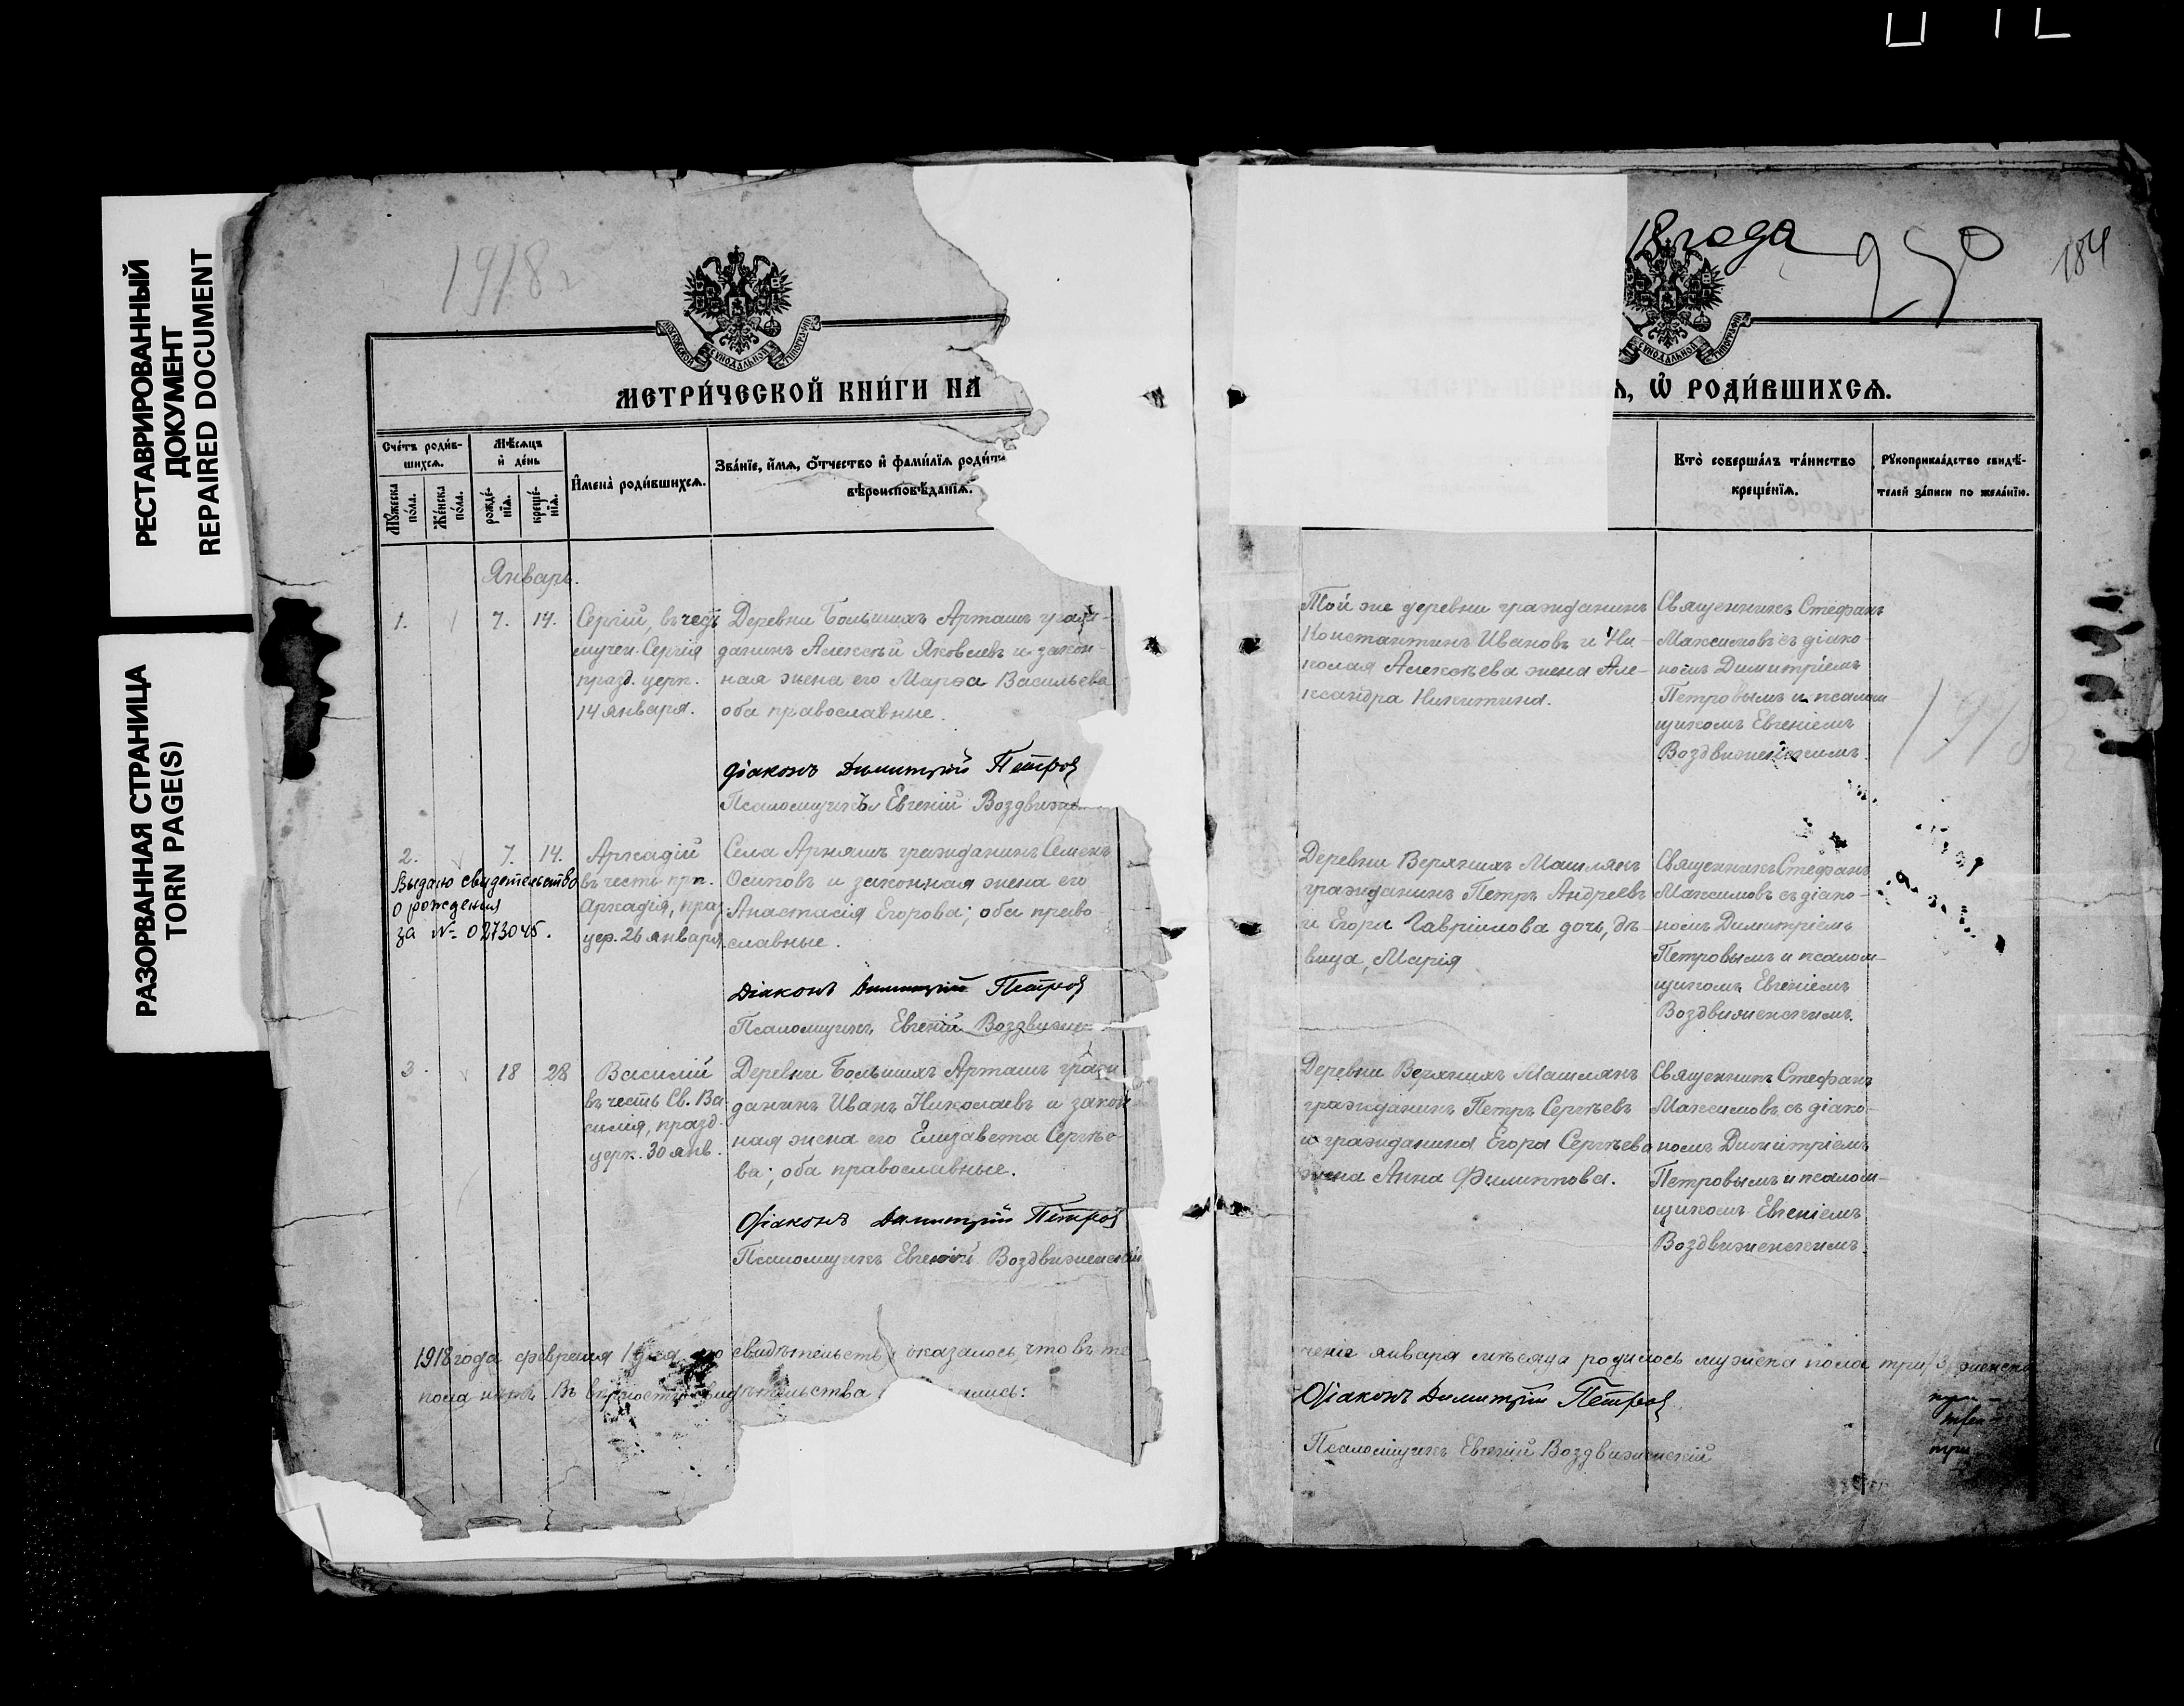 РЕСТАВРИРОВАННЫЙ
ДОКУМЕНТ
REPAIRED DOCUMENT
РАЗОРВАННАЯ СТРАНИЦА
TORN PAGE(S)
1918 г
МЕТРИ́ЧЕСКОЙ КНИ́ГИ НА
Сче́тъ роди́в-
шихсѧ.
Мѣ́сѧцъ
и҆ де́нь
Мꙋ́жеска
по́ла.
Же́нска
по́ла.
рожде́-
нїѧ.
креще́-
нїѧ.
И҆мена̀ роди́вшихсѧ.
Зва́нїе, и҆́мѧ, ѻ҆́тчество и҆ фами́лїѧ роди́т
вѣроисповѣ́данїѧ.
Январь.
1. 7. 14.
Сергій, въ честь
мучен. Сергія
празд. церк.
14 января.
Деревни Большихъ Арташъ граж-
данинъ Алексѣй Яковлевъ и закон-
ная жена его Марѳа Васильева
оба православные.
Діаконъ Димитрій Петров
Псаломщикъ Евгеній Воздвиже
2. 7. 14.
Выдано свидетельство
о рождения
за № 0273045.
Аркадій
въ честь прп.
Аркадія, праз
цер. 26 января.
Села Арняшъ гражданинъ Семенъ
Осиповъ и законная жена его
Анастасія Егорова; оба право-
славные.
Діаконъ Димитрій Петров
Псаломщикъ Евгеній Воздвиже
3. 18 28
Василій
въ честь Св. Ва-
силія, празд.
церк. 30 янв.
Деревни Большихъ Арташъ граж
данинъ Иванъ Николаевъ и закон
ная жена его Елизавета Сергѣе-
ва; оба православные.
Діаконъ Димитрій Петров
Псаломщикъ Евгеній Воздвиженскій
1918 года февраля 1 дня по свидѣтельству оказалось, что въ те
пола нѣтъ. Въ вѣрности свидѣтельства
18 года
250
184
ѧ, Ѡ҆ РОДИ́ВШИХСѦ.
Кто̀ соверша́лъ та́инство
креще́нїѧ.
Рꙋкоприкла́дство свидѣ́-
телей за́писи по жела́нїю.
Той же деревни гражданинъ
Константинъ Ивановъ и Ни-
колая Алексѣева жена Але-
ксандра Никитина.
Священникъ Стефанъ
Максимовъ съ діако-
номъ Димитріемъ
Петровымъ и псалом-
щикомъ Евгеніемъ
Воздвиженскимъ.
1918 г
Деревни Верхнихъ Машлякъ
гражданинъ Петръ Андреевъ
и Егора Гавриилова дочь, дѣ-
вица, Марія
Священникъ Стефанъ
Максимовъ съ діако-
номъ Димитріемъ
Петровымъ и псалом-
щикомъ Евгеніемъ
Воздвиженскимъ.
Деревни Верхнихъ Машлякъ
гражданинъ Петръ Сергѣевъ
и гражданина Егора Сергѣева
жена Анна Филиппова.
Священникъ Стефанъ
Максимовъ съ діако-
номъ Димитріемъ
Петровымъ и псалом-
щикомъ Евгеніемъ
Воздвиженскимъ.
ченіе января мѣсяца родилось мужска пола три, 3, женска
Діаконъ Димитрій Петров
Псаломщикъ Евгеній Воздвиженскій